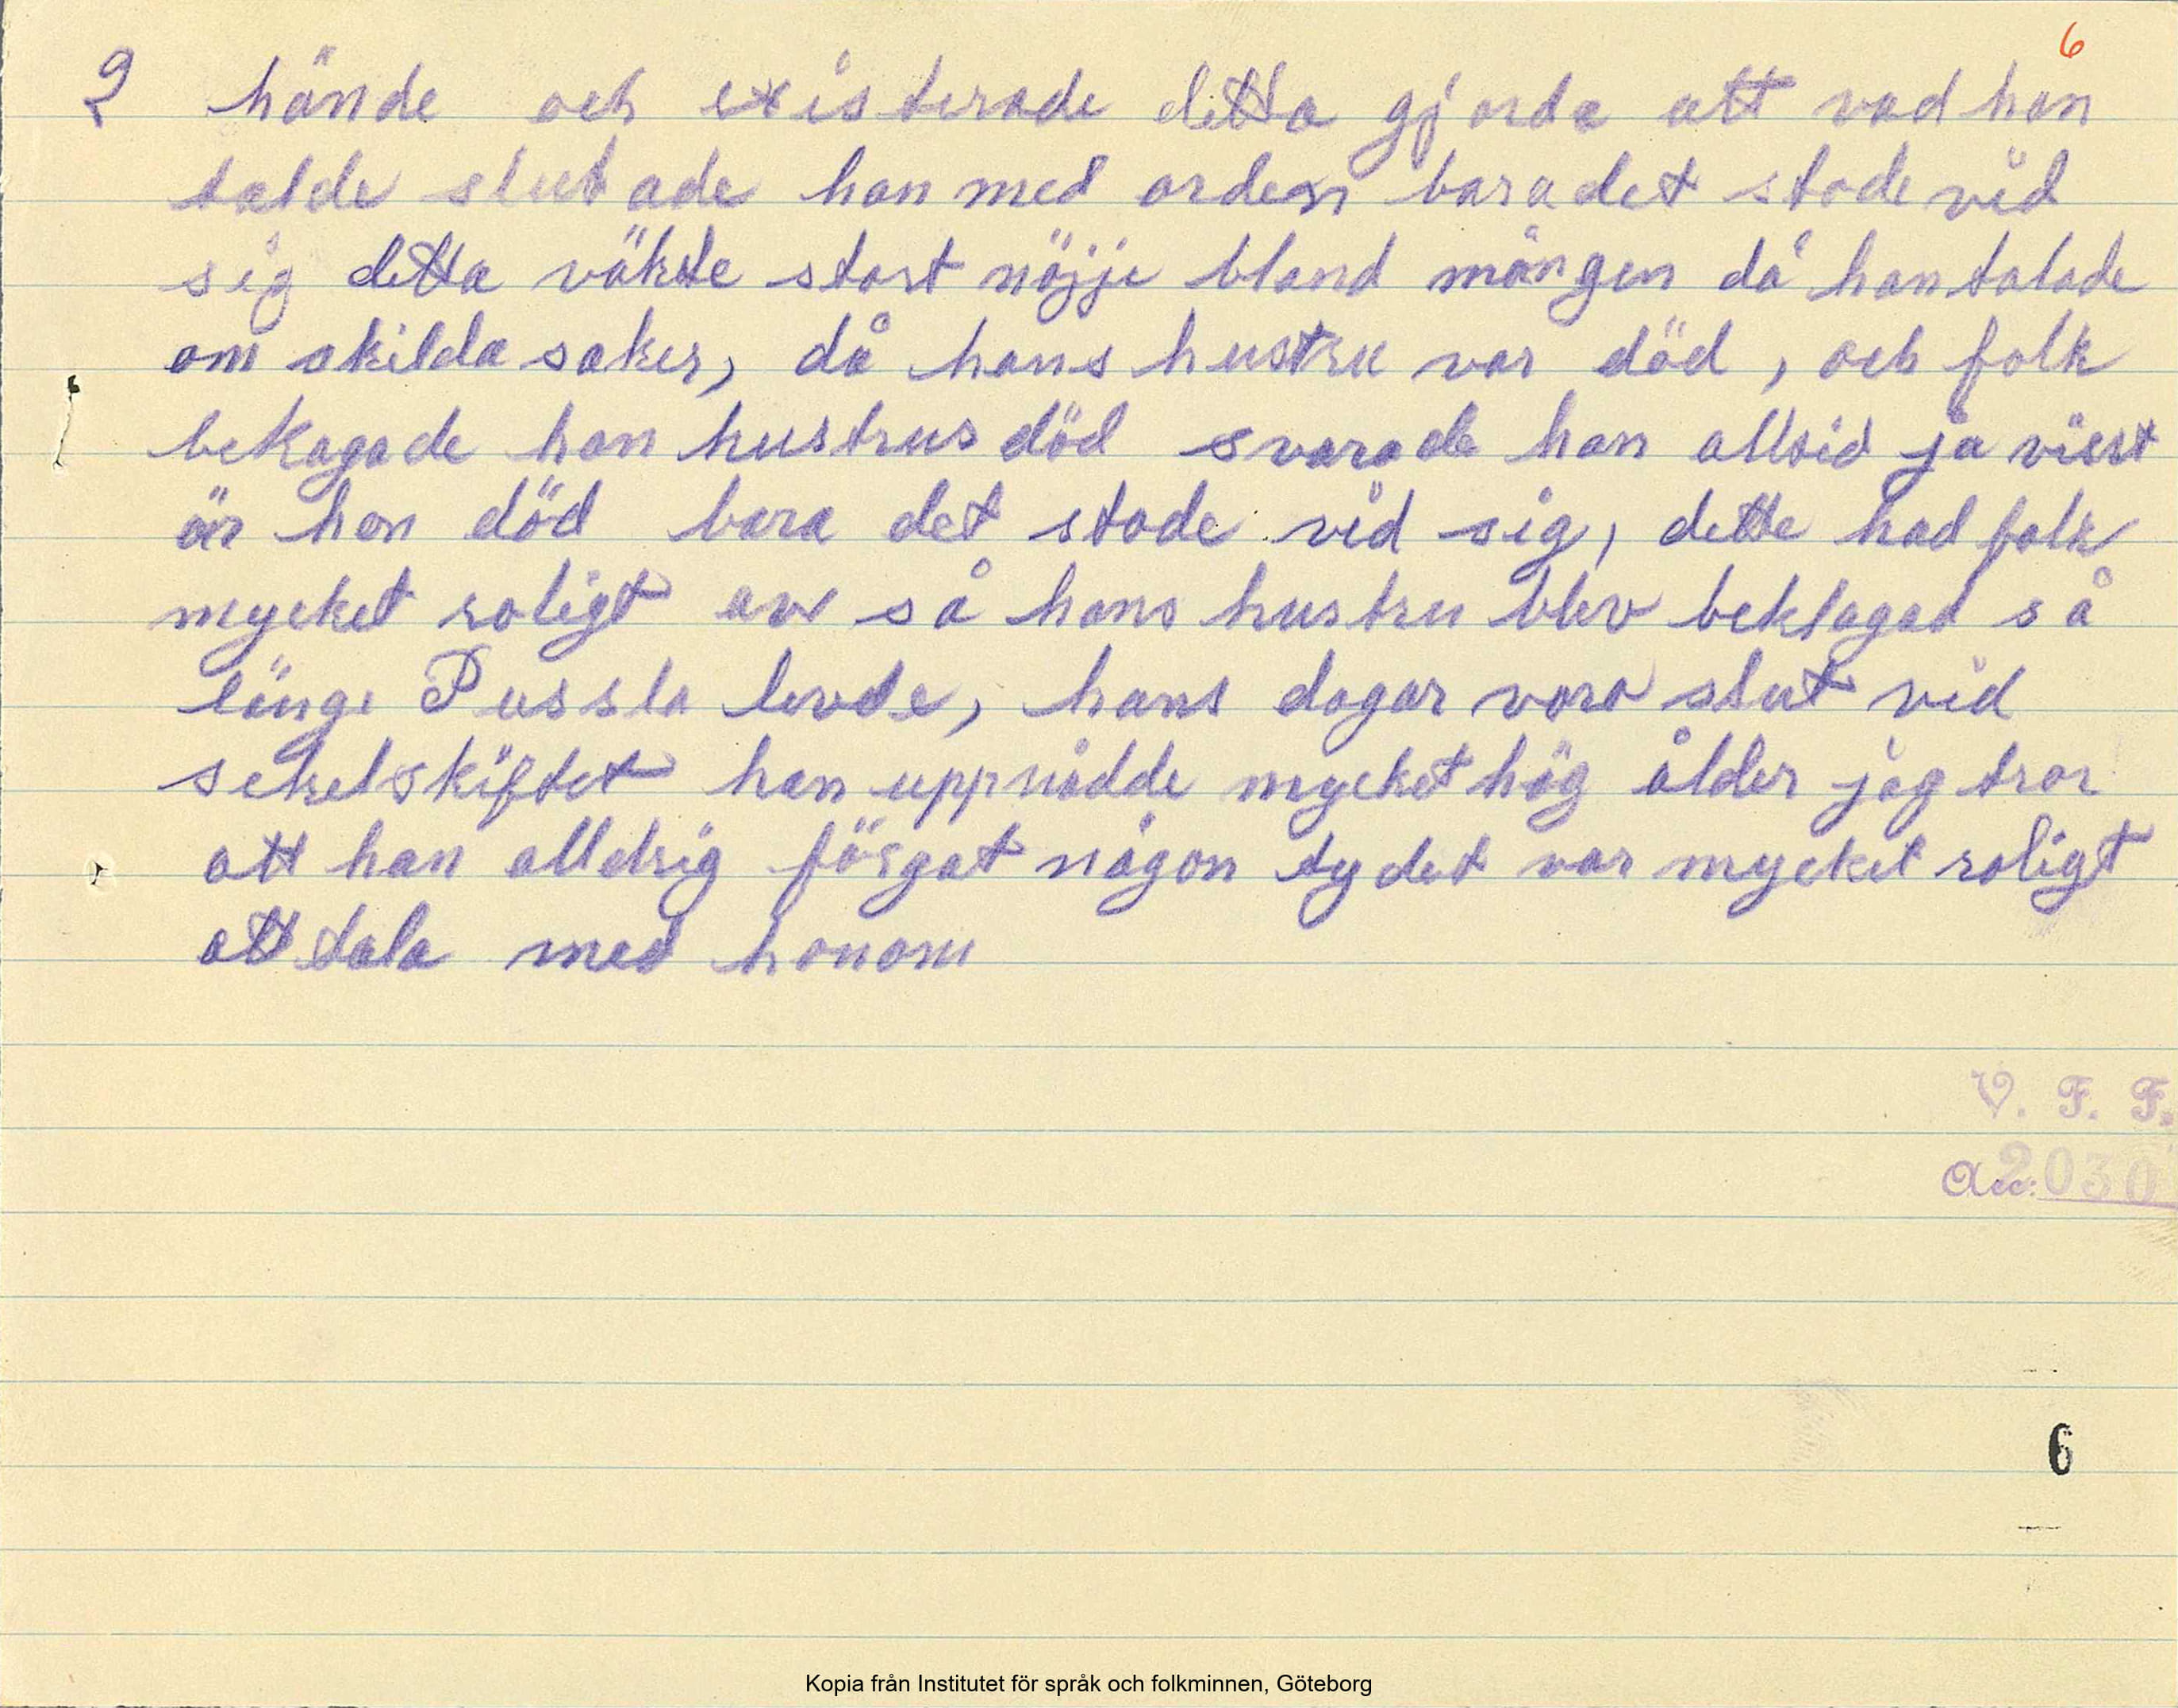 6
2 hände och existerade detta gjorde att vad han
talde slutade han med orden bara det stode vid
sig detta väkte stort nöjje bland mången då han talade
om skilda saker, då hans hustru var död, och folk
bekagade han hustrus död svarade han alltid ja visst
är hon död bara det stode vid sig, dette had folk
mycket roligt av så hans hustru blev beklagad så
länge Pussla levde, hans dagar voro slut vid
sekelskiftet han uppnådde mycket hög ålder jag tror
att han alldrig förgat någon ty det var mycket roligt
att tala med honom
V. F. F.
Acc: 2030
6
Kopia från Institutet för språk och folkminnen, Göteborg